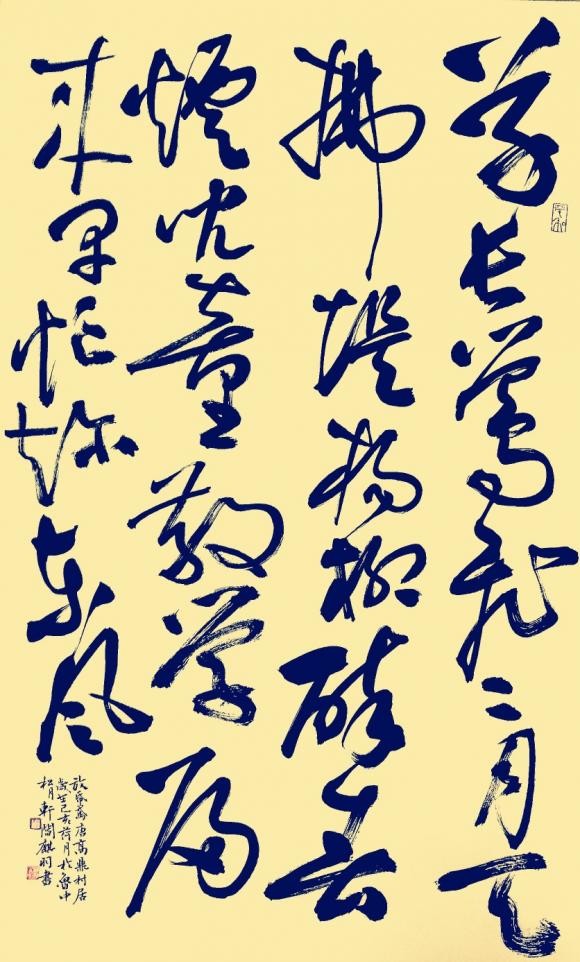 草長鶯飛二月天
拂堤楊柳醉春
煙兒童散學歸
來早忙趁東風
放紙鳶唐高鼎村居
歲在己亥荷月於魯中
松月軒麒羽書